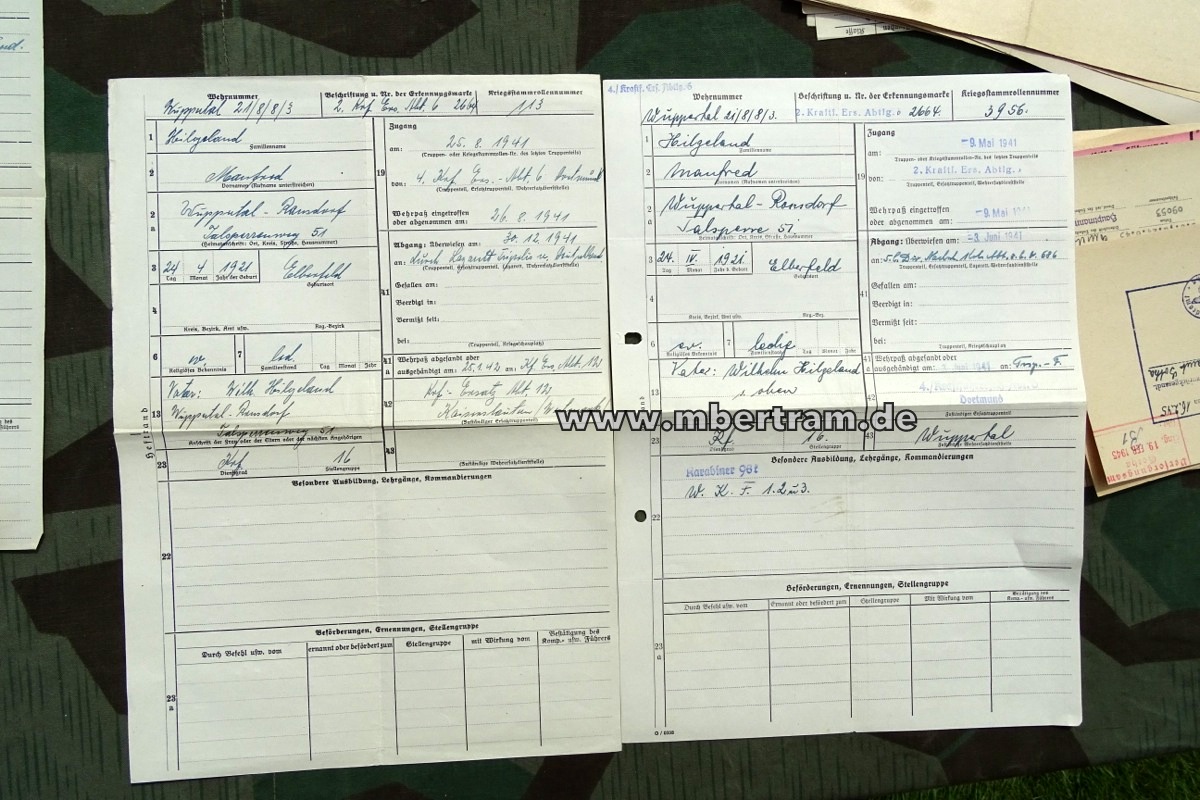 Wehrnummer
Wuppertal 21/8/8/3
Beschriftung u. Nr. der Erkennungsmarke
2. Krf. Ers. Abt. 6 2664
Kriegsstammrollennummer
113
1
Hilgeland
Familienname
2
Manfred
Vornamen (Rufname unterstreichen)
2
a
Wuppertal - Ronsdorf
Talsperrenweg 51
(Heimatanschrift: Ort, Kreis, Straße, Hausnummer)
3
24 4 1921
Tag Monat Jahr der Geburt
Elberfeld
Geburtsort
4
Kreis, Bezirk, Amt usw. Reg.-Bezirk
6
ev
Religiöses Bekenntnis
7
led.
Familienstand
Tag Monat Jahr
13
Vater: Wilh. Hilgeland
Wuppertal - Ronsdorf
Talsperrenweg 51
Anschrift der Frau oder der Eltern oder der nächsten Angehörigen
Heftrand
23
Krf.
Dienstgrad
16
Stellengruppe
19
Zugang
am: 25. 8. 1941
(Truppen- oder Kriegsstammrollen-Nr. des letzten Truppenteils)
von: 4. Krf. Ers. - Abt. 6 Dortmund
(Truppenteil, Ersatztruppenteil, Wehrersatzdienststelle)
Wehrpaß eingetroffen
oder abgenommen am: 26. 8. 1941
41
Abgang: Überwiesen am: 30. 12. 1941
an: Durch Lazarett Tripolis n. Deutschland
(Truppenteil, Ersatztruppenteil, Lazarett, Wehrersatzdienststelle)
Gefallen am:
Beerdigt in:
Vermißt seit:
bei:
(Truppenteil, Kriegsschauplatz)
41
a
Wehrpaß abgesandt oder
ausgehändigt am: 25.1.42 an: Kf. Ers. Abt. 12
42
Krf.- Ersatz Abt. 12
Kaiserslautern
(Zuständiger Ersatztruppenteil)
43
(Zuständige Wehrersatzdienststelle)
22
Besondere Ausbildung, Lehrgänge, Kommandierungen
23
a
Beförderungen, Ernennungen, Stellengruppe
Durch Befehl usw. vom
ernannt oder befördert zum
Stellengruppe
mit Wirkung vom
Bestätigung des
Komp.- usw. Führers
4./ Kraftf. Ers. Abtlg. 6
Wehrnummer
Wuppertal 21/8/8/3.
Beschriftung u. Nr. der Erkennungsmarke
2. Kraftf. Ers. Abtlg. 6 2664.
Kriegsstammrollennummer
3956.
1
Hilgeland
Familienname
2
Manfred
Vornamen (Rufname unterstreichen)
2
a
Wuppertal - Ronsdorf
Talsperre 51.
Heimatanschrift: Ort, Kreis, Straße, Hausnummer)
3
24. IV. 1921
Tag Monat Jahr d. Geburt
Elberfeld
Geburtsort
4
Kreis, Bezirk, Amt usw. Reg.-Bez.
6
ev.
Religiöses Bekenntnis
7
ledig
Familienstand
Tag Monat Jahr
13
Vater: Wilhelm Hilgeland
s. oben
23
Kf.
Dienstgrad
16.
Stellengruppe
19
Zugang
am: -9. Mai 1941
Truppen- oder Kriegsstammrollen-Nr. des letzten Truppenteils
von: 2. Kraftf. Ers. Abtlg. 6
Truppenteil, Ersatztruppenteil, Wehrersatzdienststelle
Wehrpaß eingetroffen
oder abgenommen am: -9. Mai 1941
41
Abgang: Überwiesen am: -3. Juni 1941
Truppenteil, Ersatztruppenteil, Lazarett, Wehrersatzdienststelle
Gefallen am:
Beerdigt in:
Vermißt seit:
bei:
Truppenteil, Kriegsschauplatz
41
a
Wehrpaß abgesandt oder
ausgehändigt am: 3. Juni 1941 an: Trsp.-F.
42
Dortmund
Zuständiger Ersatztruppenteil
43
Wuppertal
Zuständige Wehrersatzdienststelle
22
Besondere Ausbildung, Lehrgänge, Kommandierungen
Karabiner 98k
W. K. F. 1. 2 u 3.
23
a
Beförderungen, Ernennungen, Stellengruppe
Durch Befehl usw. vom
Ernannt oder befördert zum
Stellengruppe
Mit Wirkung vom
Bestätigung des
Komp.- usw. Führers
www.mbertram.de
09053
Hauptmann